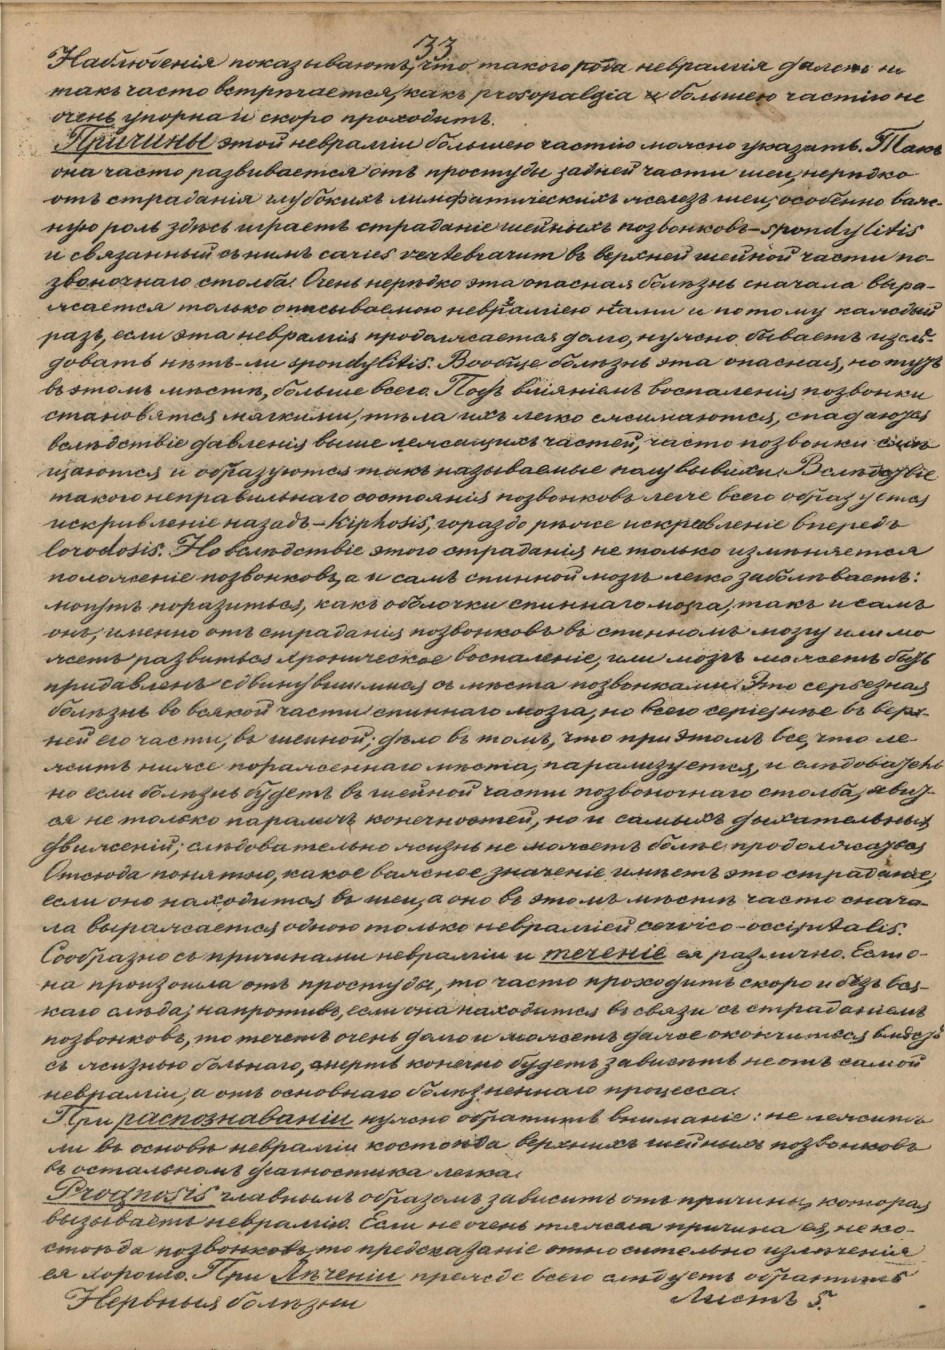 33
Наблюденія показываютъ, что такого рода невралгія далеко не
такъ часто встрѣчается, какъ prosopalgia и большею частію не
очень упорна и скоро проходитъ.
Причины этой невралгіи большею частію можно указать. Такъ
она часто развивается отъ простуды задней части шеи, нерѣдко
отъ страданія глубокихъ лимфатическихъ железъ шеи, особенно важ-
ную роль здѣсь играетъ страданіе шейныхъ позвонковъ – spondylitis
и связанный съ нимъ caries vertebrarum въ верхней шейной части по-
звоночнаго столба. Очень нерѣдко эта опасная болѣзнь сначала выра-
жается только описываемою невралгіею и потому каждый
разъ, если эта невралгія продолжается долго, нужно бываетъ изслѣ-
довать нѣтъ-ли spondylitis. Вообще болѣзнь эта опасная, но тутъ
въ этомъ мѣстѣ, больше всего. Подъ вліяніемъ воспаленія позвонки
становятся мягкими, тѣла ихъ легко сжимаются, спадаются
вслѣдствіе давленія выше лежащихъ частей, часто позвонки смѣ-
щаются и образуются такъ называемые полувывихи. Вслѣдствіе
такого неправильнаго состоянія позвонковъ легче всего образуется
искривленіе назадъ – kiphosis, гораздо рѣже искревленіе впередъ
lorodosis. Но вслѣдствіе этого страданія не только измѣняется
положеніе позвонковъ, а и самъ спинной мозгъ легко заболѣваетъ:
могутъ поразиться, какъ оболочки спиннаго мозга, такъ и самъ
онъ, именно отъ страданія позвонковъ въ спинномъ мозгу или мо
жетъ развиться хроническое воспаленіе, или мозгъ можетъ быть
придавленъ сдвинувшимися съ мѣста позвонками. Это серьезная
болѣзнь во всякой части спиннаго мозга, но всего серіознѣе въ верх-
ней его части, въ шейной; дѣло въ томъ, что при этомъ все, что ле
житъ ниже пораженнаго мѣста, парализуется, и слѣдователь
но если болѣзнь будетъ въ шейной части позвоночнаго столба, явит-
ся не только параличъ конечностей, но и самыхъ дыхательныхъ
движеній; слѣдовательно жизнь не можетъ болѣе продолжаться
Отсюда понятно, какое важное значеніе имѣетъ это страданіе,
если оно находится въ шеи, а оно въ этомъ мѣстѣ часто снача-
ла выражается одною только невралгіей cervico-occipitalis.
Сообразно съ причинами невралгіи и теченіе ея различно. Если о-
на произошла отъ простуды, то часто проходитъ скоро и безъ вся-
каго слѣда; напротивъ, если она находится въ связи съ страданіемъ
позвонковъ, то течетъ очень долго и можетъ даже окончиться вмѣстѣ
съ жизнію больнаго, смерть конечно будетъ зависѣть не отъ самой
невралгіи, а отъ основнаго болѣзненнаго процесса.
При распознаваніи нужно обратить вниманіе: не лежитъ
ли въ основѣ невралгіи костоѣда верхнихъ шейныхъ позвонковъ
въ остальномъ діагностика легка.
Prognosis главнымъ образомъ зависитъ отъ причины, которая
вызываетъ невралгію. Если не очень тяжела причина ея, не ко-
стоѣда позвонковъ, то предсказаніе относительно излѣченія
ея хорошо. При Лѣченіи прежде всего слѣдуетъ обратить
Нервныя болѣзни Листъ 5.